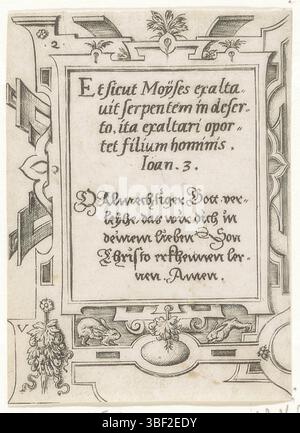 2
Et sicut Moÿses exalta-
uit serpentem in deser-
to, ita exaltari opor-
tet filium hominis.
Ioan. 3.
O Almechtiger Gott ver-
leyhe das wir dich in
deinem lieben Son
Christo erkhennen ler-
nen. Amen.
V
alamy
Image ID: 3BF2EDY
www.alamy.com